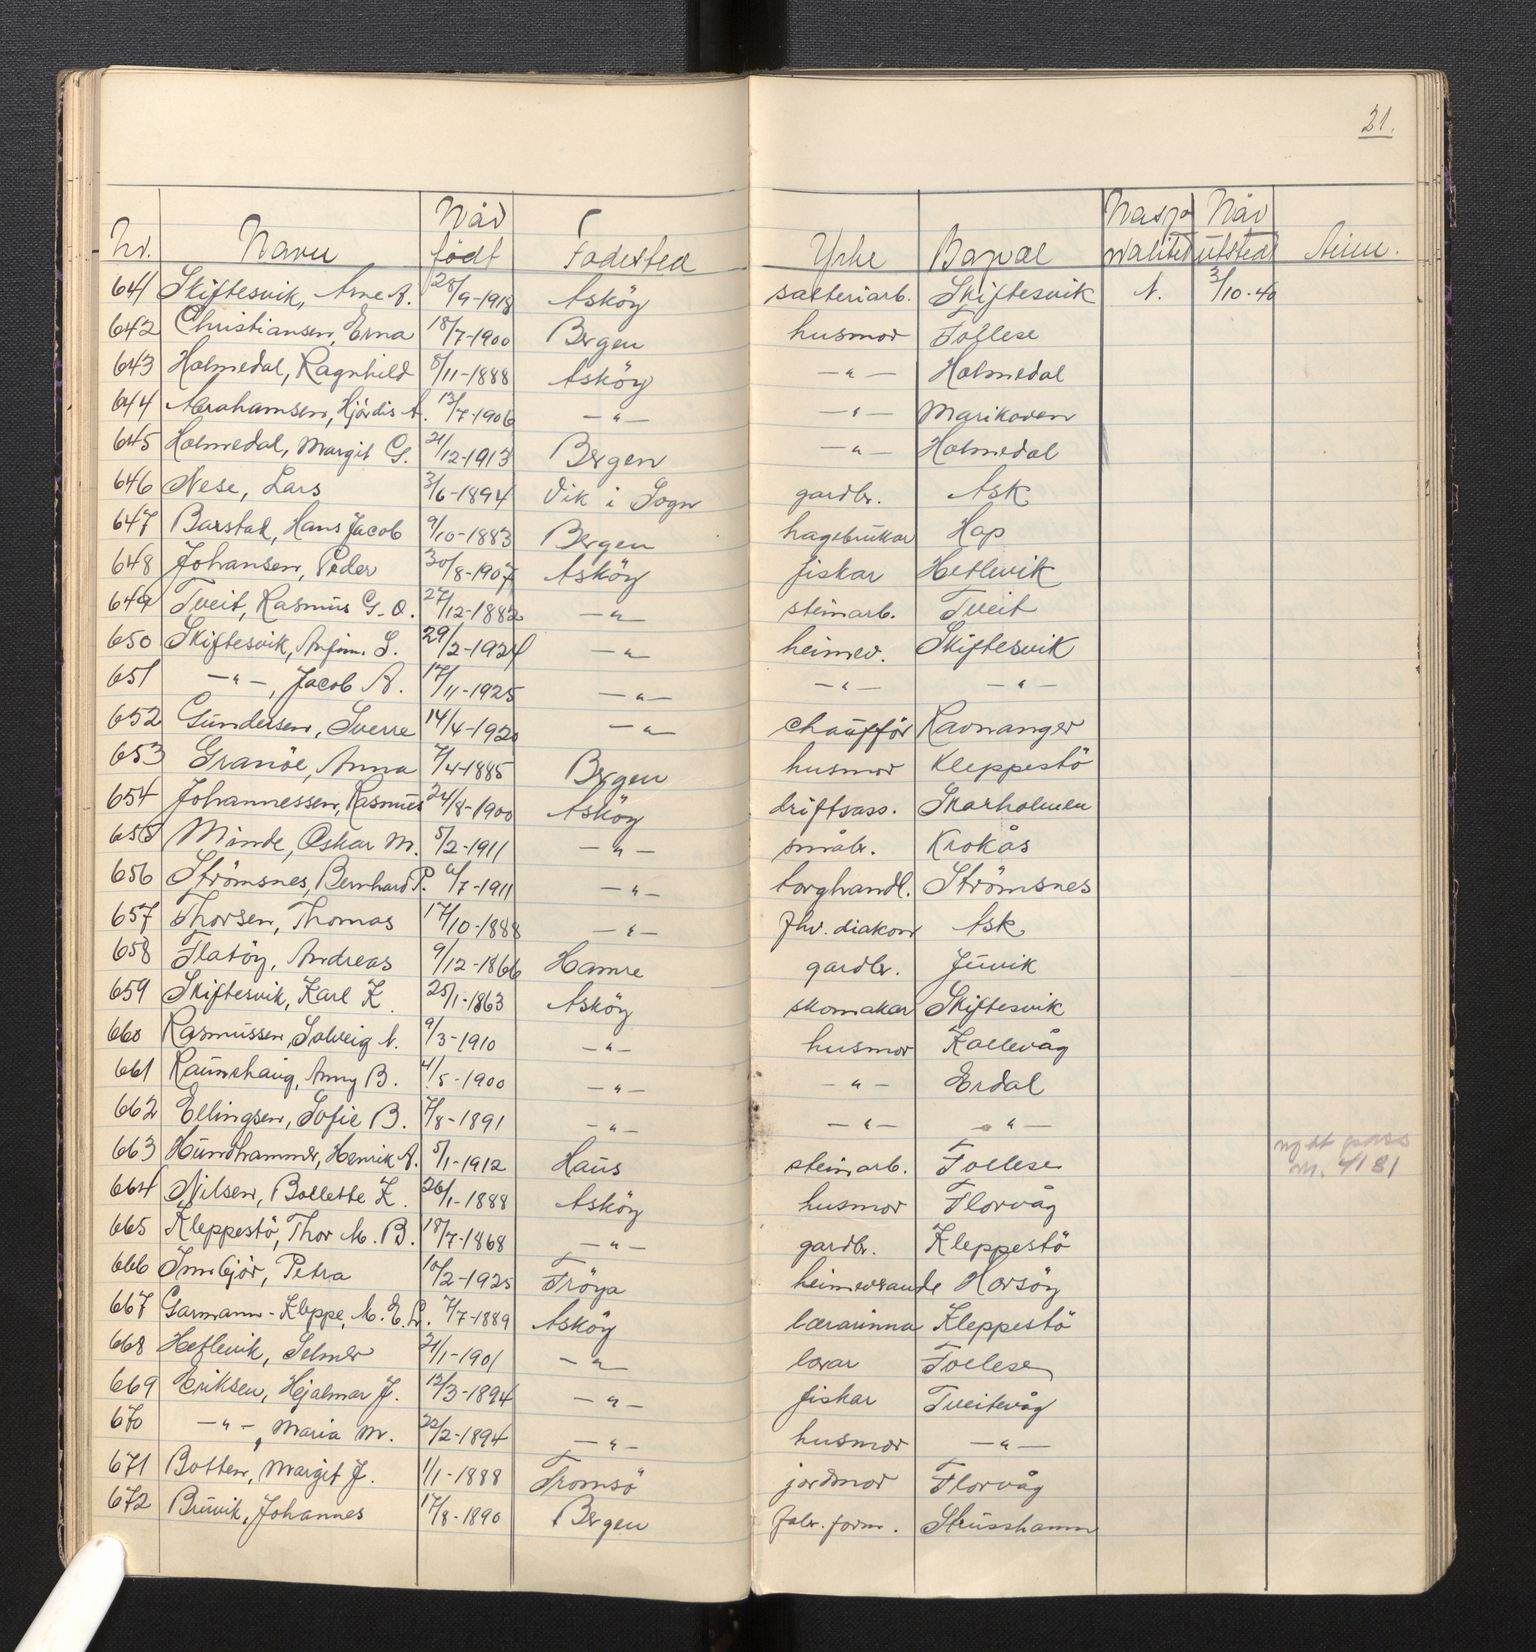 21.
Nr. Navn Når født Fødested Yrke Bopæl Nasjonalitet Når utsted Anm.
641 Skiftesvik, Arne A. 28/9-1918 Asköy sæteriarb. Skiftesvik N. 3/10-40
642 Christiansen, Erna 18/7-1900 Bergen husmor Follese
643 Holmedal, Ragnhild 8/11-1888 Asköy -"- Holmedal
644 Abrahamsen, Hjördis A. 13/7-1906 -"- -"- Marikoven
645 Holmedal, Margit G. 21/12-1913 Bergen -"- Holmedal
646 Nese, Lars 3/6-1894 Vik i Sogn gardbr. Ask
647 Barstad, Hans Jacob 9/10-1883 Bergen hagebrukar Hop
648 Johansen, Peder 30/8-1907 Asköy fiskar Hetlevik
649 Tveit, Rasmus G. O. 27/12-1882 -"- steinarb. Tveit
650 Skiftesvik, Anfin. S. 29/2-1924 -"- heimev. Skiftesvik
651 -"-, Jacob A. 17/11-1925 -"- -"- -"-
652 Gundersen, Sverre 14/4-1920 -"- chaufför Ravnanger
653 Granöe, Anna 7/4-1885 Bergen husmor Kleppestö
654 Johannessen, Rasmus 24/8-1900 Asköy driftsass. Skarholmen
655 Minde, Oskar M. 5/2-1911 -"- småbr. Krokås
656 Strömsnes, Bernhard P. 6/7-1911 -"- torghandl. Strömsnes
657 Thorsen, Thomas 17/10-1888 -"- fhv. diakon Ask
658 Flatöy, Andreas 9/12-1866 Hamre gardbr. Juvik
659 Skiftesvik, Karl K. 25/1-1863 Asköy skomakar Skiftesvik
660 Rasmussen, Solveig N. 9/3-1910 -"- husmor Kollevåg
661 Raunehaug, Anny B. 4/5-1900 -"- -"- Erdal
662 Ellingsen, Sofie B. 7/8-1891 -"- -"- -"-
663 Hundhammer, Henrik A. 5/1-1912 Haus steinarb. Follese nytt pass nr. 4181
664 Nilsen, Bollette K. 26/1-1888 Asköy husmor Florvåg
665 Kleppestö, Thor M. B. 18/7-1868 -"- gardbr. Kleppestö
666 Innbjör, Petra 10/2-1925 Fröya heimeverande Horsöy
667 Garmann-Kleppe, M. E. L. 7/7-1889 Asköy lærarinna Kleppestö
668 Hetlevik, Selmer 21/1-1901 -"- lærar Follese
669 Eriksen, Hjalmar J. 12/3-1894 -"- fiskar Tveitevåg
670 -"-, Maria M. 22/2-1894 -"- husmor -"-
671 Botten, Margit J. 1/1-1888 Tromsö jordmor Florvåg
672 Bruvik, Johannes 17/8-1890 Bergen fabr. form. Strusshamn